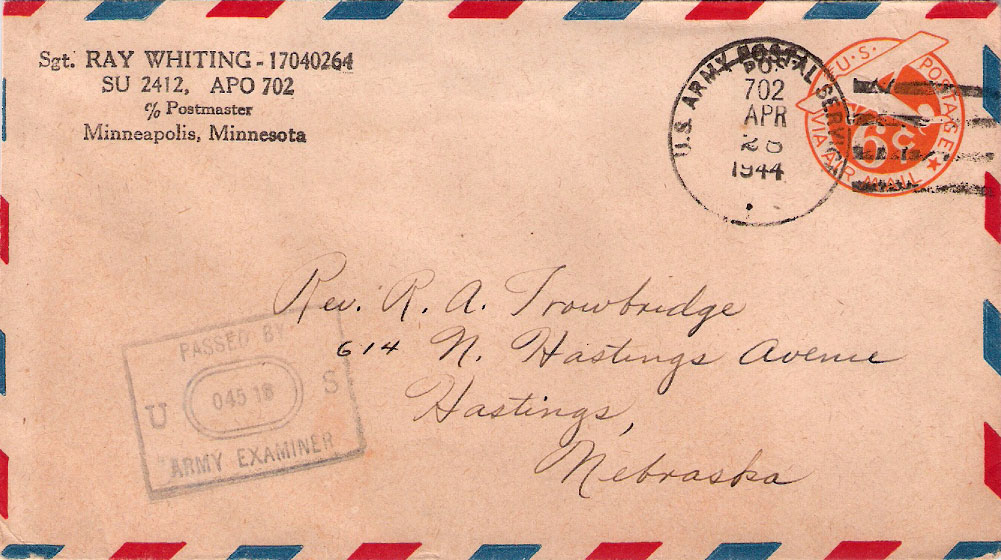 Sgt. RAY WHITING - 17040264
SU 2412, APO 702
c/o Postmaster
Minneapolis, Minnesota
U.S. ARMY POSTAL SERVICE
702
APR
28
1944
U.S. POSTAGE
6¢
VIA AIR MAIL
Rev. R. A. Trowbridge
614 N. Hastings Avenue
Hastings,
Nebraska
PASSED BY
U 04518 S
ARMY EXAMINER